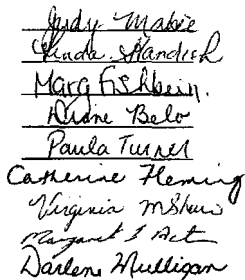 Judy Makie
Linda Standish
Marg Fishbein.
Diane Belo
Paula Turner
Catherine Fleming
Virginia
Margaret
Darlene Mulligan